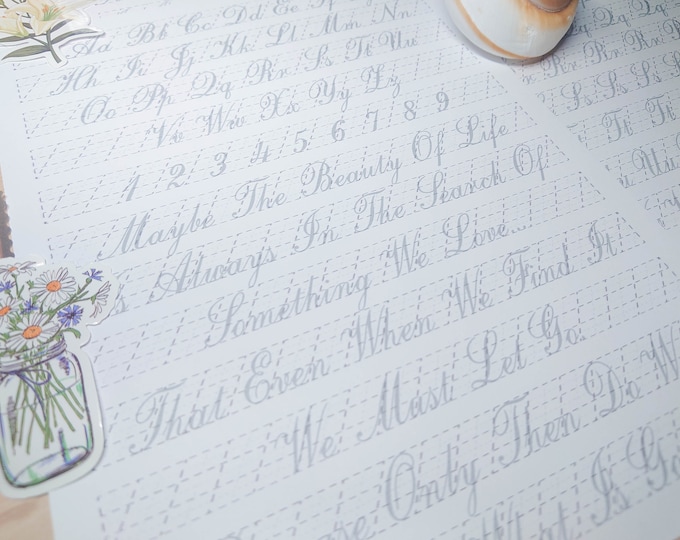 Aa Bb Cc Dd Ee
Hh Ii Jj Kk Ll Mm Nn
Oo Pp Qq Rr Ss Tt Uu
Vv Ww Xx Yy Zz
1 2 3 4 5 6 7 8 9
Maybe The Beauty Of Life
Is Always In The Search Of
Something We Love...
That Even When We Find It
We Must Let Go.
Only Then Do
That Is
Qq Qq
Rr Rr Rr Rr
Ss Ss Ss Ss
Tt Tt
Uu